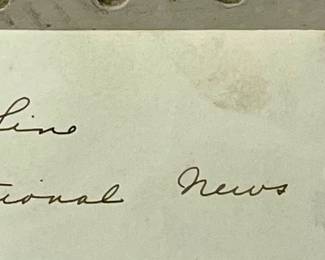 line
tional News